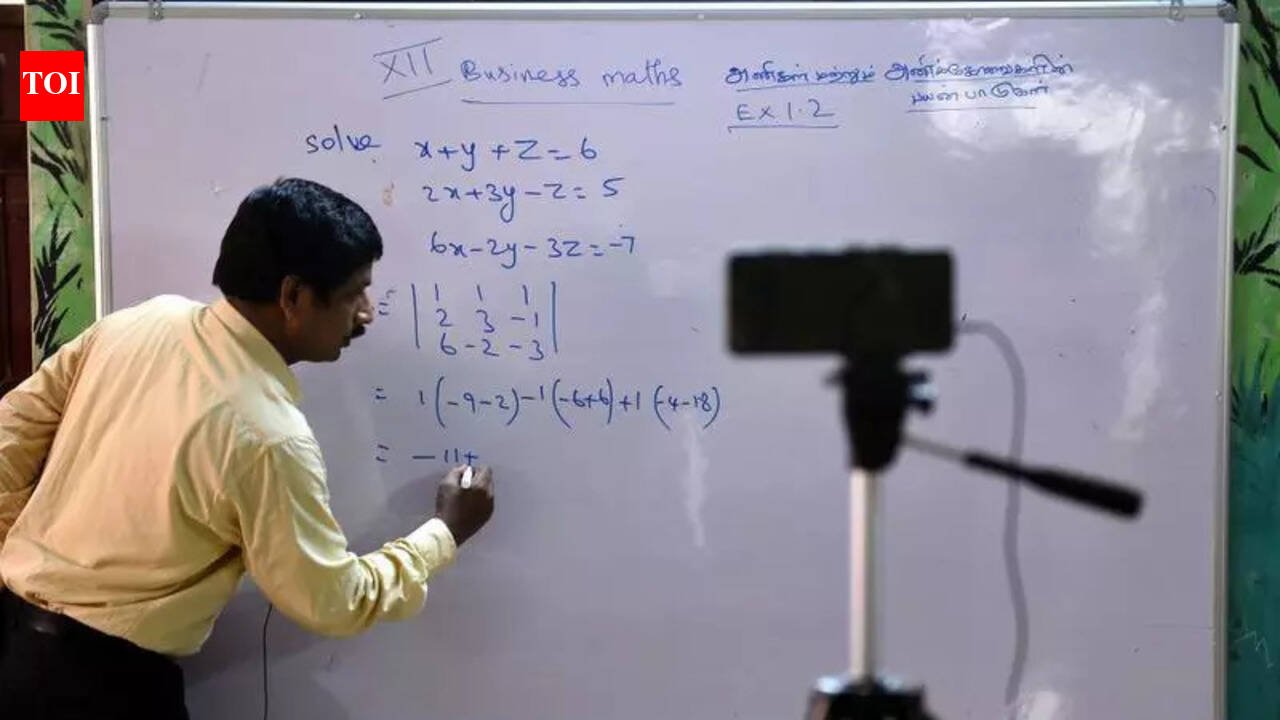 TOI
XII Business maths
அணிகள் மற்றும் அணிக்கோவைகளின்
பயன்பாடுகள்
EX 1.2
solve x+y+z=6
2x+3y-z=5
6x-2y-3z=-7
= | 1 1 1 |
| 2 3 -1 |
| 6 -2 -3 |
= 1(-9-2)-1(-6+6)+1(-4-18)
= -11+